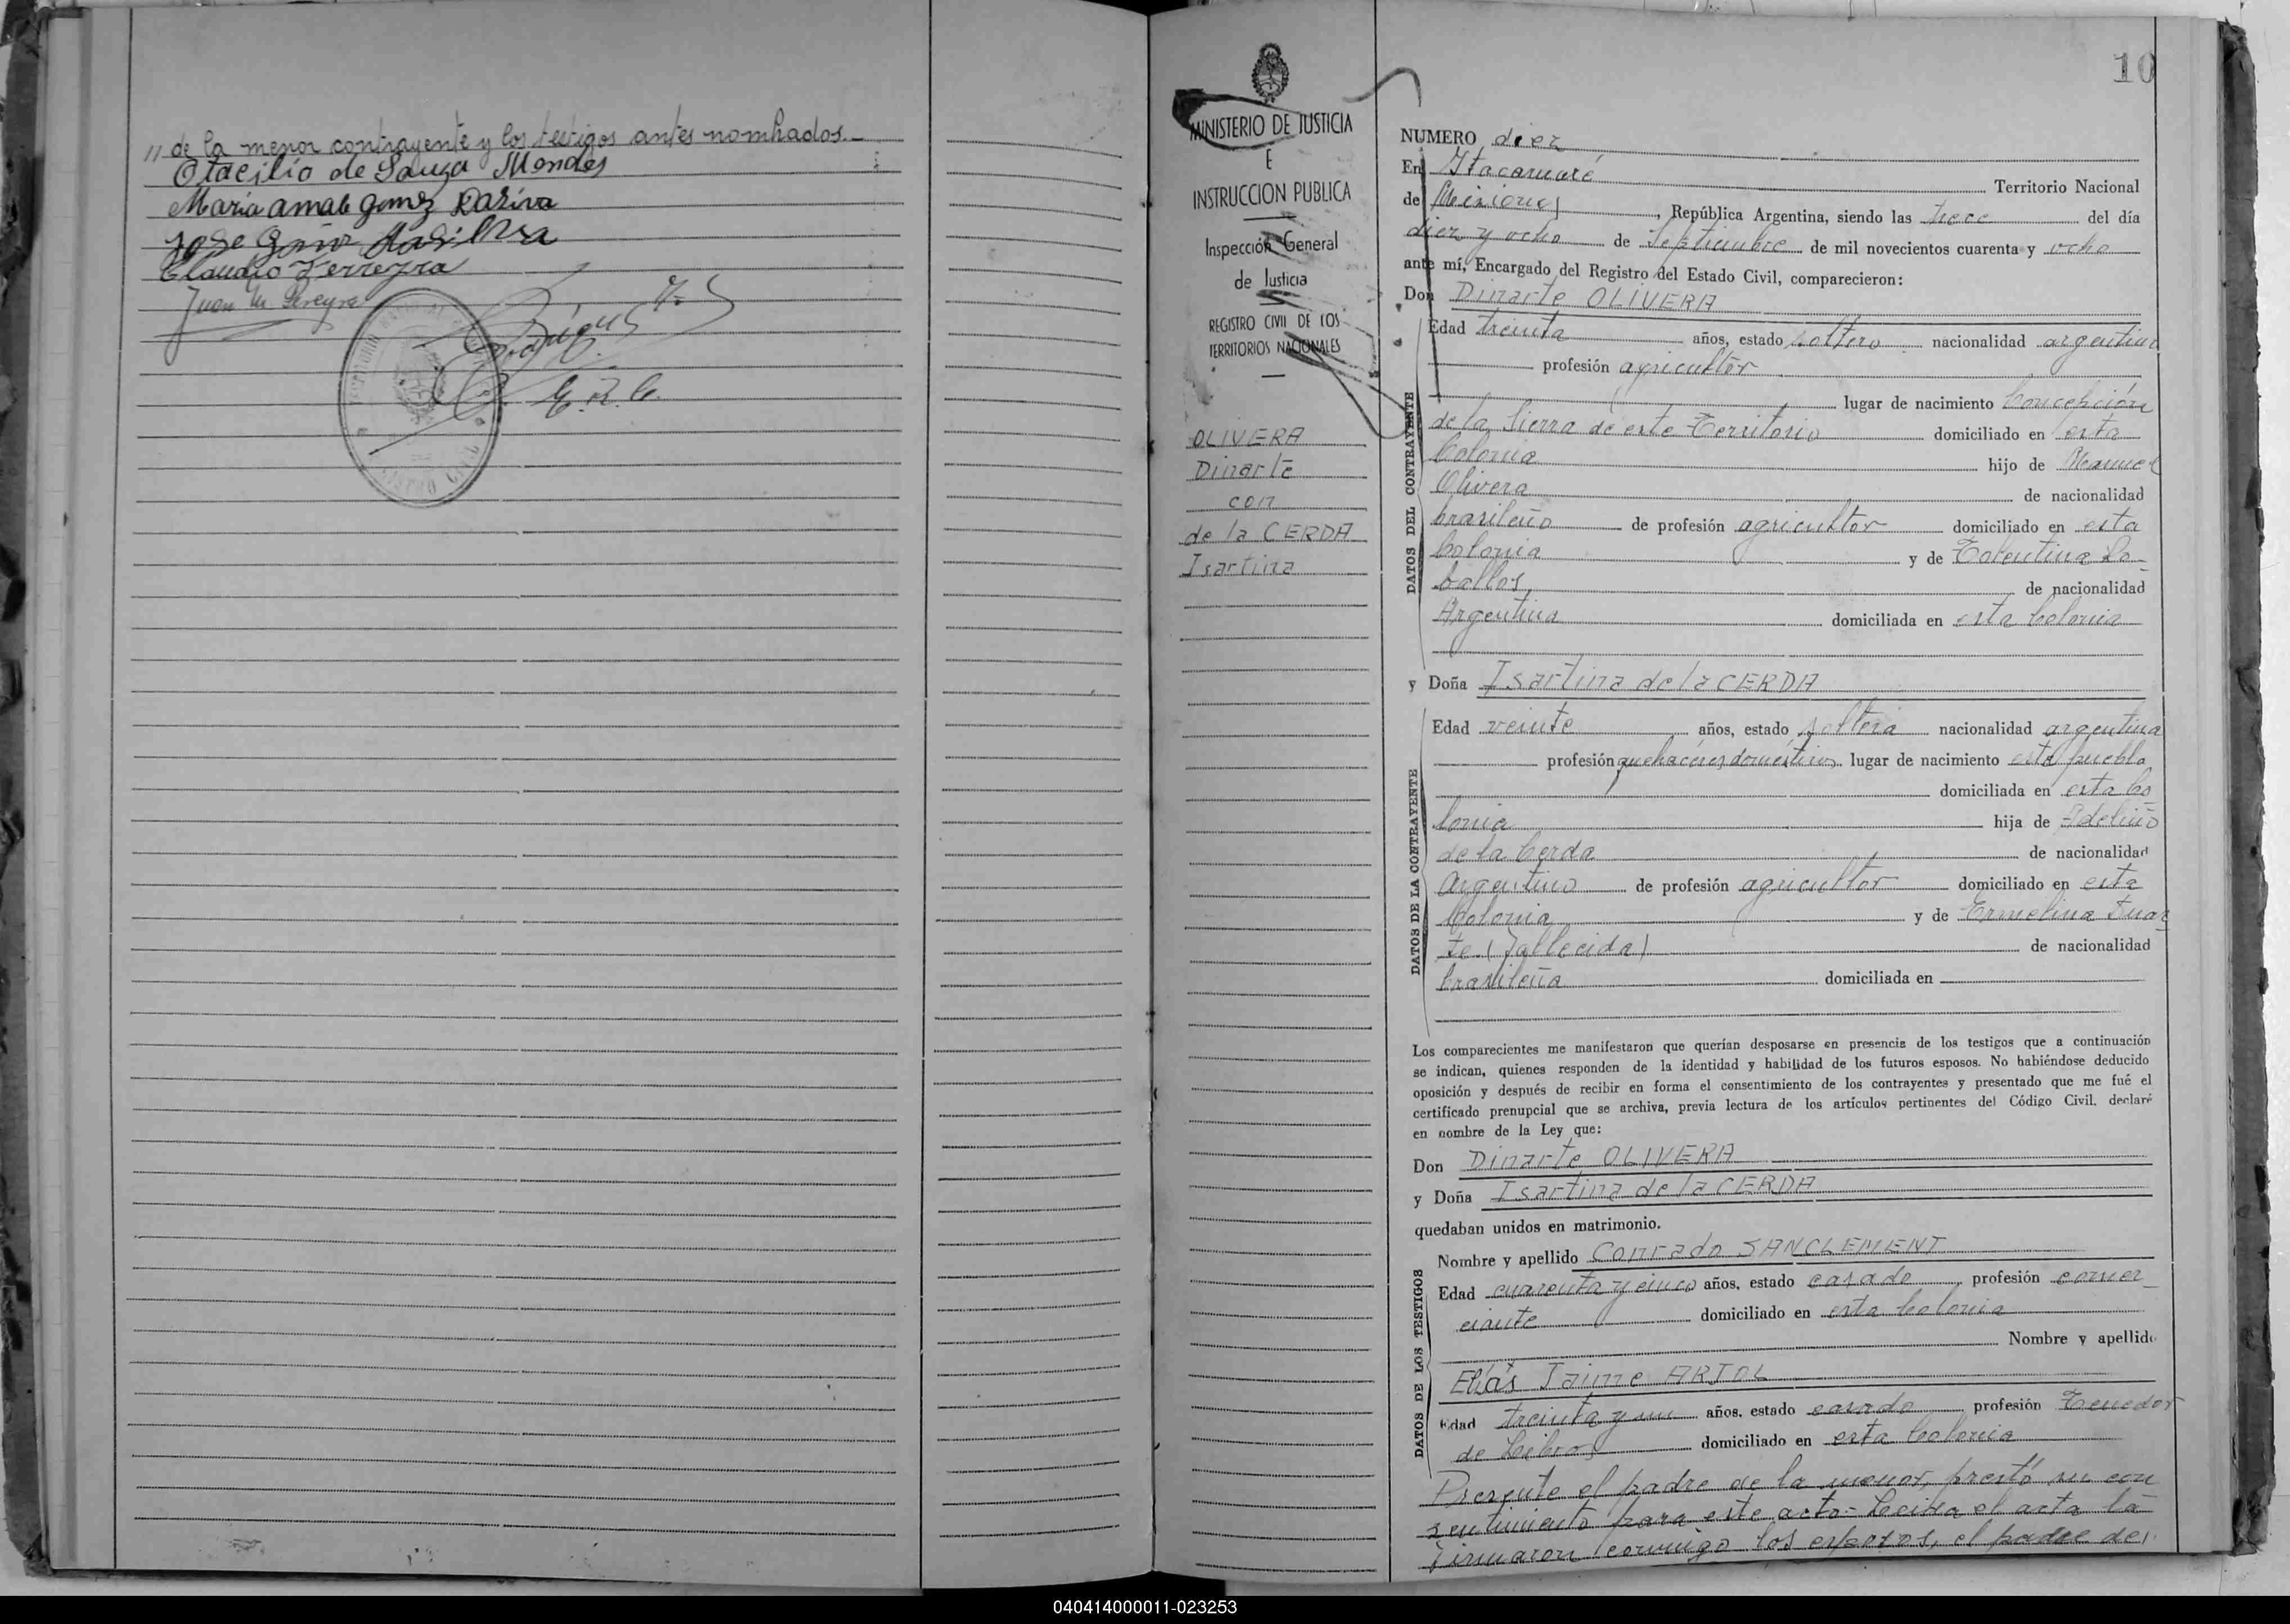 // de la menor contrayente y los testigos antes nombrados.-
Otacilio de Souza Mendes
Maria
Claudio Ferreyra
Juan M. Pereyra
E. R. C.
10
MINISTERIO DE JUSTICIA
E
INSTRUCCION PUBLICA
Inspección General
de Justicia
REGISTRO CIVIL DE LOS
TERRITORIOS NACIONALES
OLIVERA
Dinarte
con
de la CERDA
Isartina
NUMERO diez
En Itacaruaré Territorio Nacional
de Misiones, República Argentina, siendo las trece del día
diez y ocho de Septiembre de mil novecientos cuarenta y ocho
ante mí, Encargado del Registro del Estado Civil, comparecieron:
Don Dinarte OLIVERA
DATOS DEL CONTRAYENTE
Edad treinta años, estado soltero nacionalidad argentina
profesión agricultor
lugar de nacimiento Concepción
de la Sierra de este Territorio domiciliado en esta
Colonia hijo de Manuel
Olivera de nacionalidad
brasileño de profesión agricultor domiciliado en esta
Colonia y de Tolentina Lo-
ballos de nacionalidad
Argentina domiciliada en esta Colonia
y Doña Isartina de la CERDA
DATOS DE LA CONTRAYENTE
Edad veinte años, estado soltera nacionalidad argentina
profesión quehaceres domésticos lugar de nacimiento este pueblo
domiciliada en esta Co
lonia hija de Idelino
de la Cerda de nacionalidad
Argentino de profesión agricultor domiciliado en esta
Colonia y de Ermelina Duar
te (fallecida) de nacionalidad
brasileña domiciliada en
Los comparecientes me manifestaron que querían desposarse en presencia de los testigos que a continuación
se indican, quienes responden de la identidad y habilidad de los futuros esposos. No habiéndose deducido
oposición y después de recibir en forma el consentimiento de los contrayentes y presentado que me fué el
certificado prenupcial que se archiva, previa lectura de los artículos pertinentes del Código Civil, declaré
en nombre de la Ley que:
Don Dinarte OLIVERA
y Doña Isartina de la CERDA
quedaban unidos en matrimonio.
DATOS DE LOS TESTIGOS
Nombre y apellido Conrado SANCLEMENT
Edad cuarenta y cinco años, estado casado profesión comer
ciante domiciliado en esta Colonia
Nombre y apellido
Elías Jaime ARJOL
Edad treinta y un años, estado casado profesión Tenedor
de Libros domiciliado en esta Colonia
Presente el padre de la menor, prestó su con
sentimiento para este acto- Leida el acta la
firmaron conmigo los esposos, el padre de/
040414000011-023253